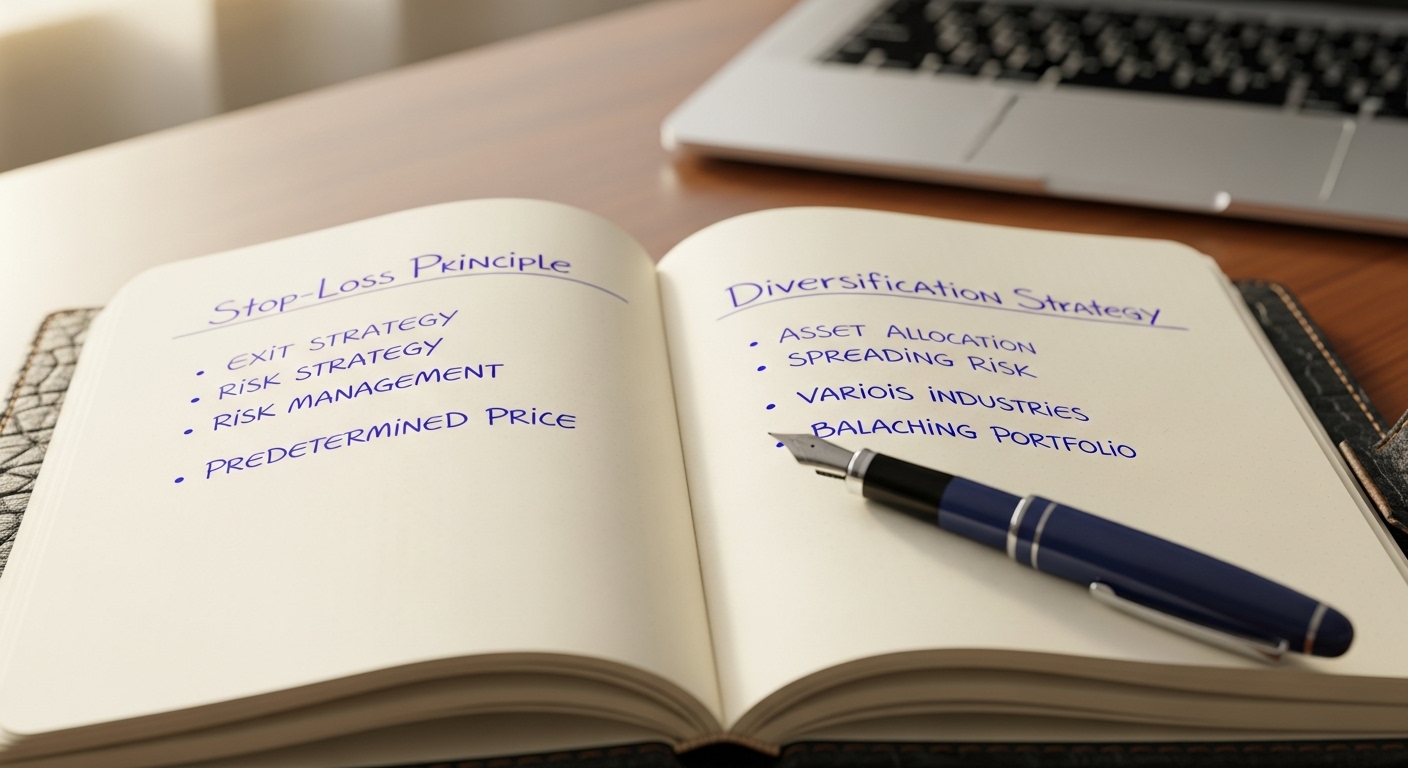 Stop-Loss Pkinciple
• EXIT STRATEGY
• RISK STRATEGY
• RISK MANAGEMENT
• PREDETERMINED PRICE
Diversification Strategy
• ASSET ALLOCATION
• SPREADING RISK
• VARIOIS INDUSTRIES
• BALACHING PORTFOLIO